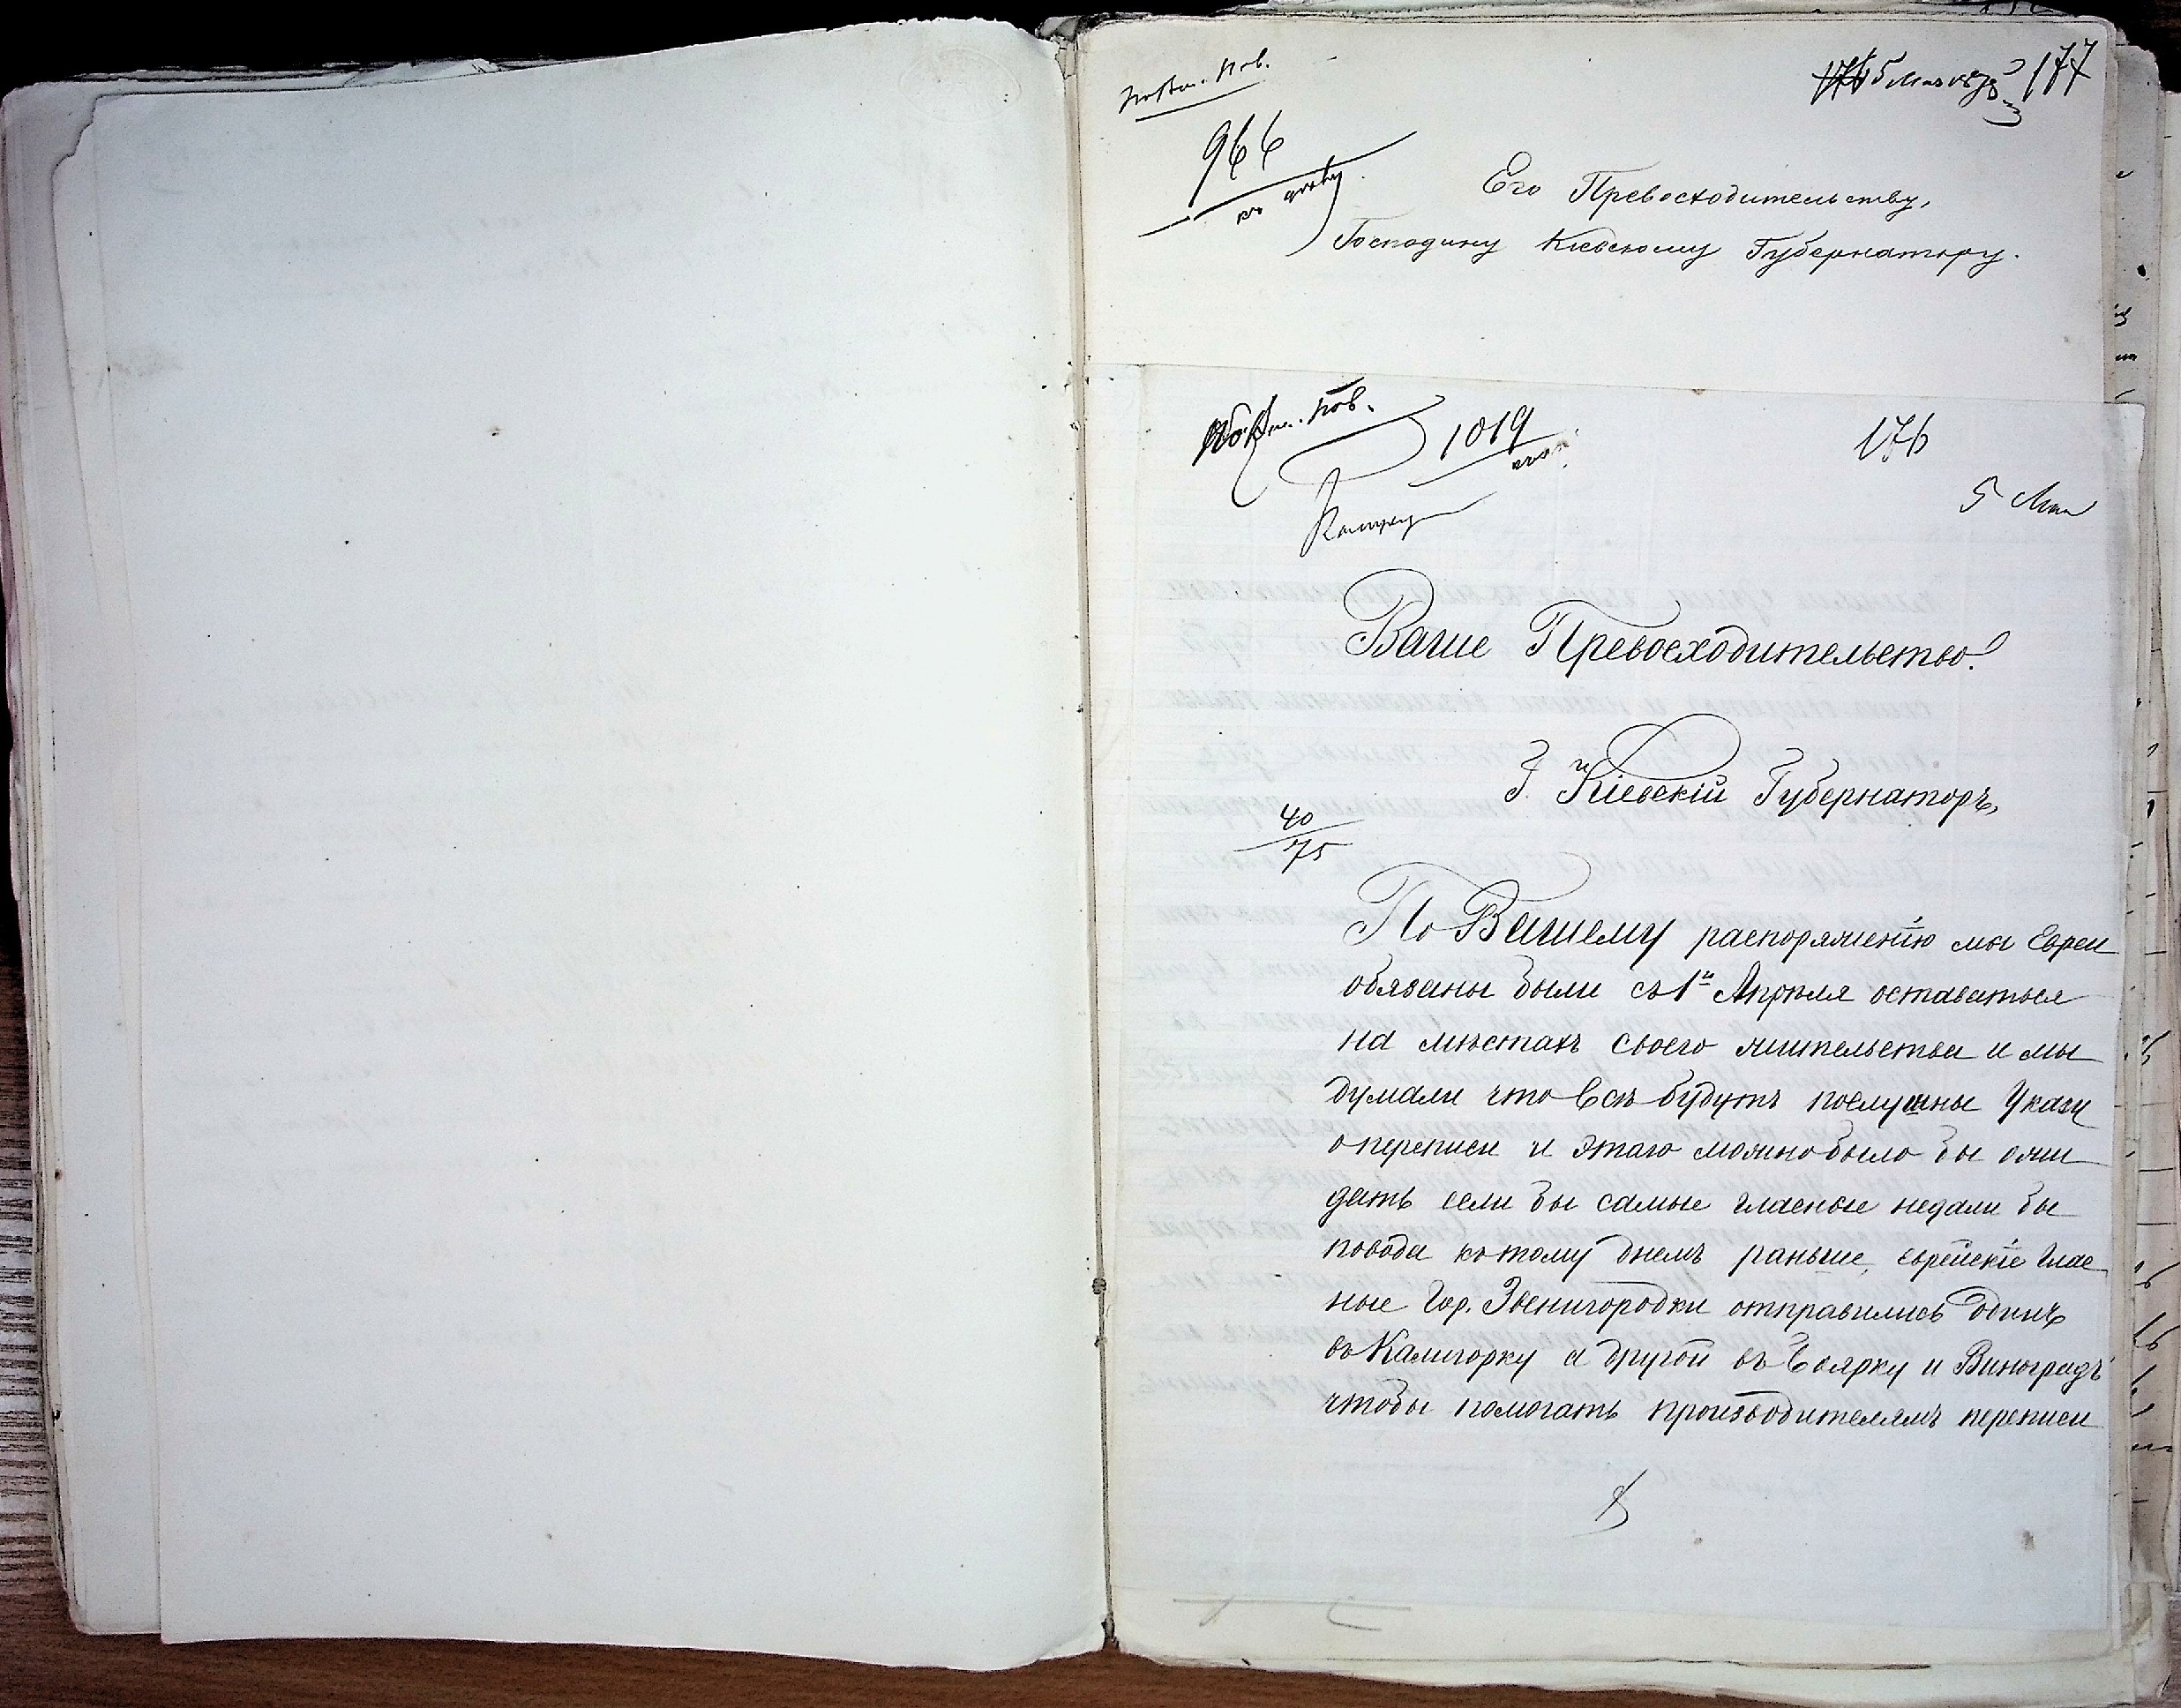 5 Мая 1875 177
966
Его Превосходительству,
Господину Кіевскому Губернатору.
1019
176
5 Мая
Ваше Превосходительство!
Г. Кіевскій Губернаторъ,
40
75
По Вашему распоряженію мы Евреи
обязаны были съ 1го Апрѣля оставаться
на мѣстахъ своего жительства и мы
думали что всѣ будутъ послушны Указу
о переписи и этаго можно было бы ожи
дать если бы самые гласные недали бы
повода къ тому днемъ раньше, еврейскіе глас
ные Гор. Звенигородки отправились одинъ
въ Калигорку а другой въ Боярку и Виноградъ
чтобы помогать производителямъ переписи